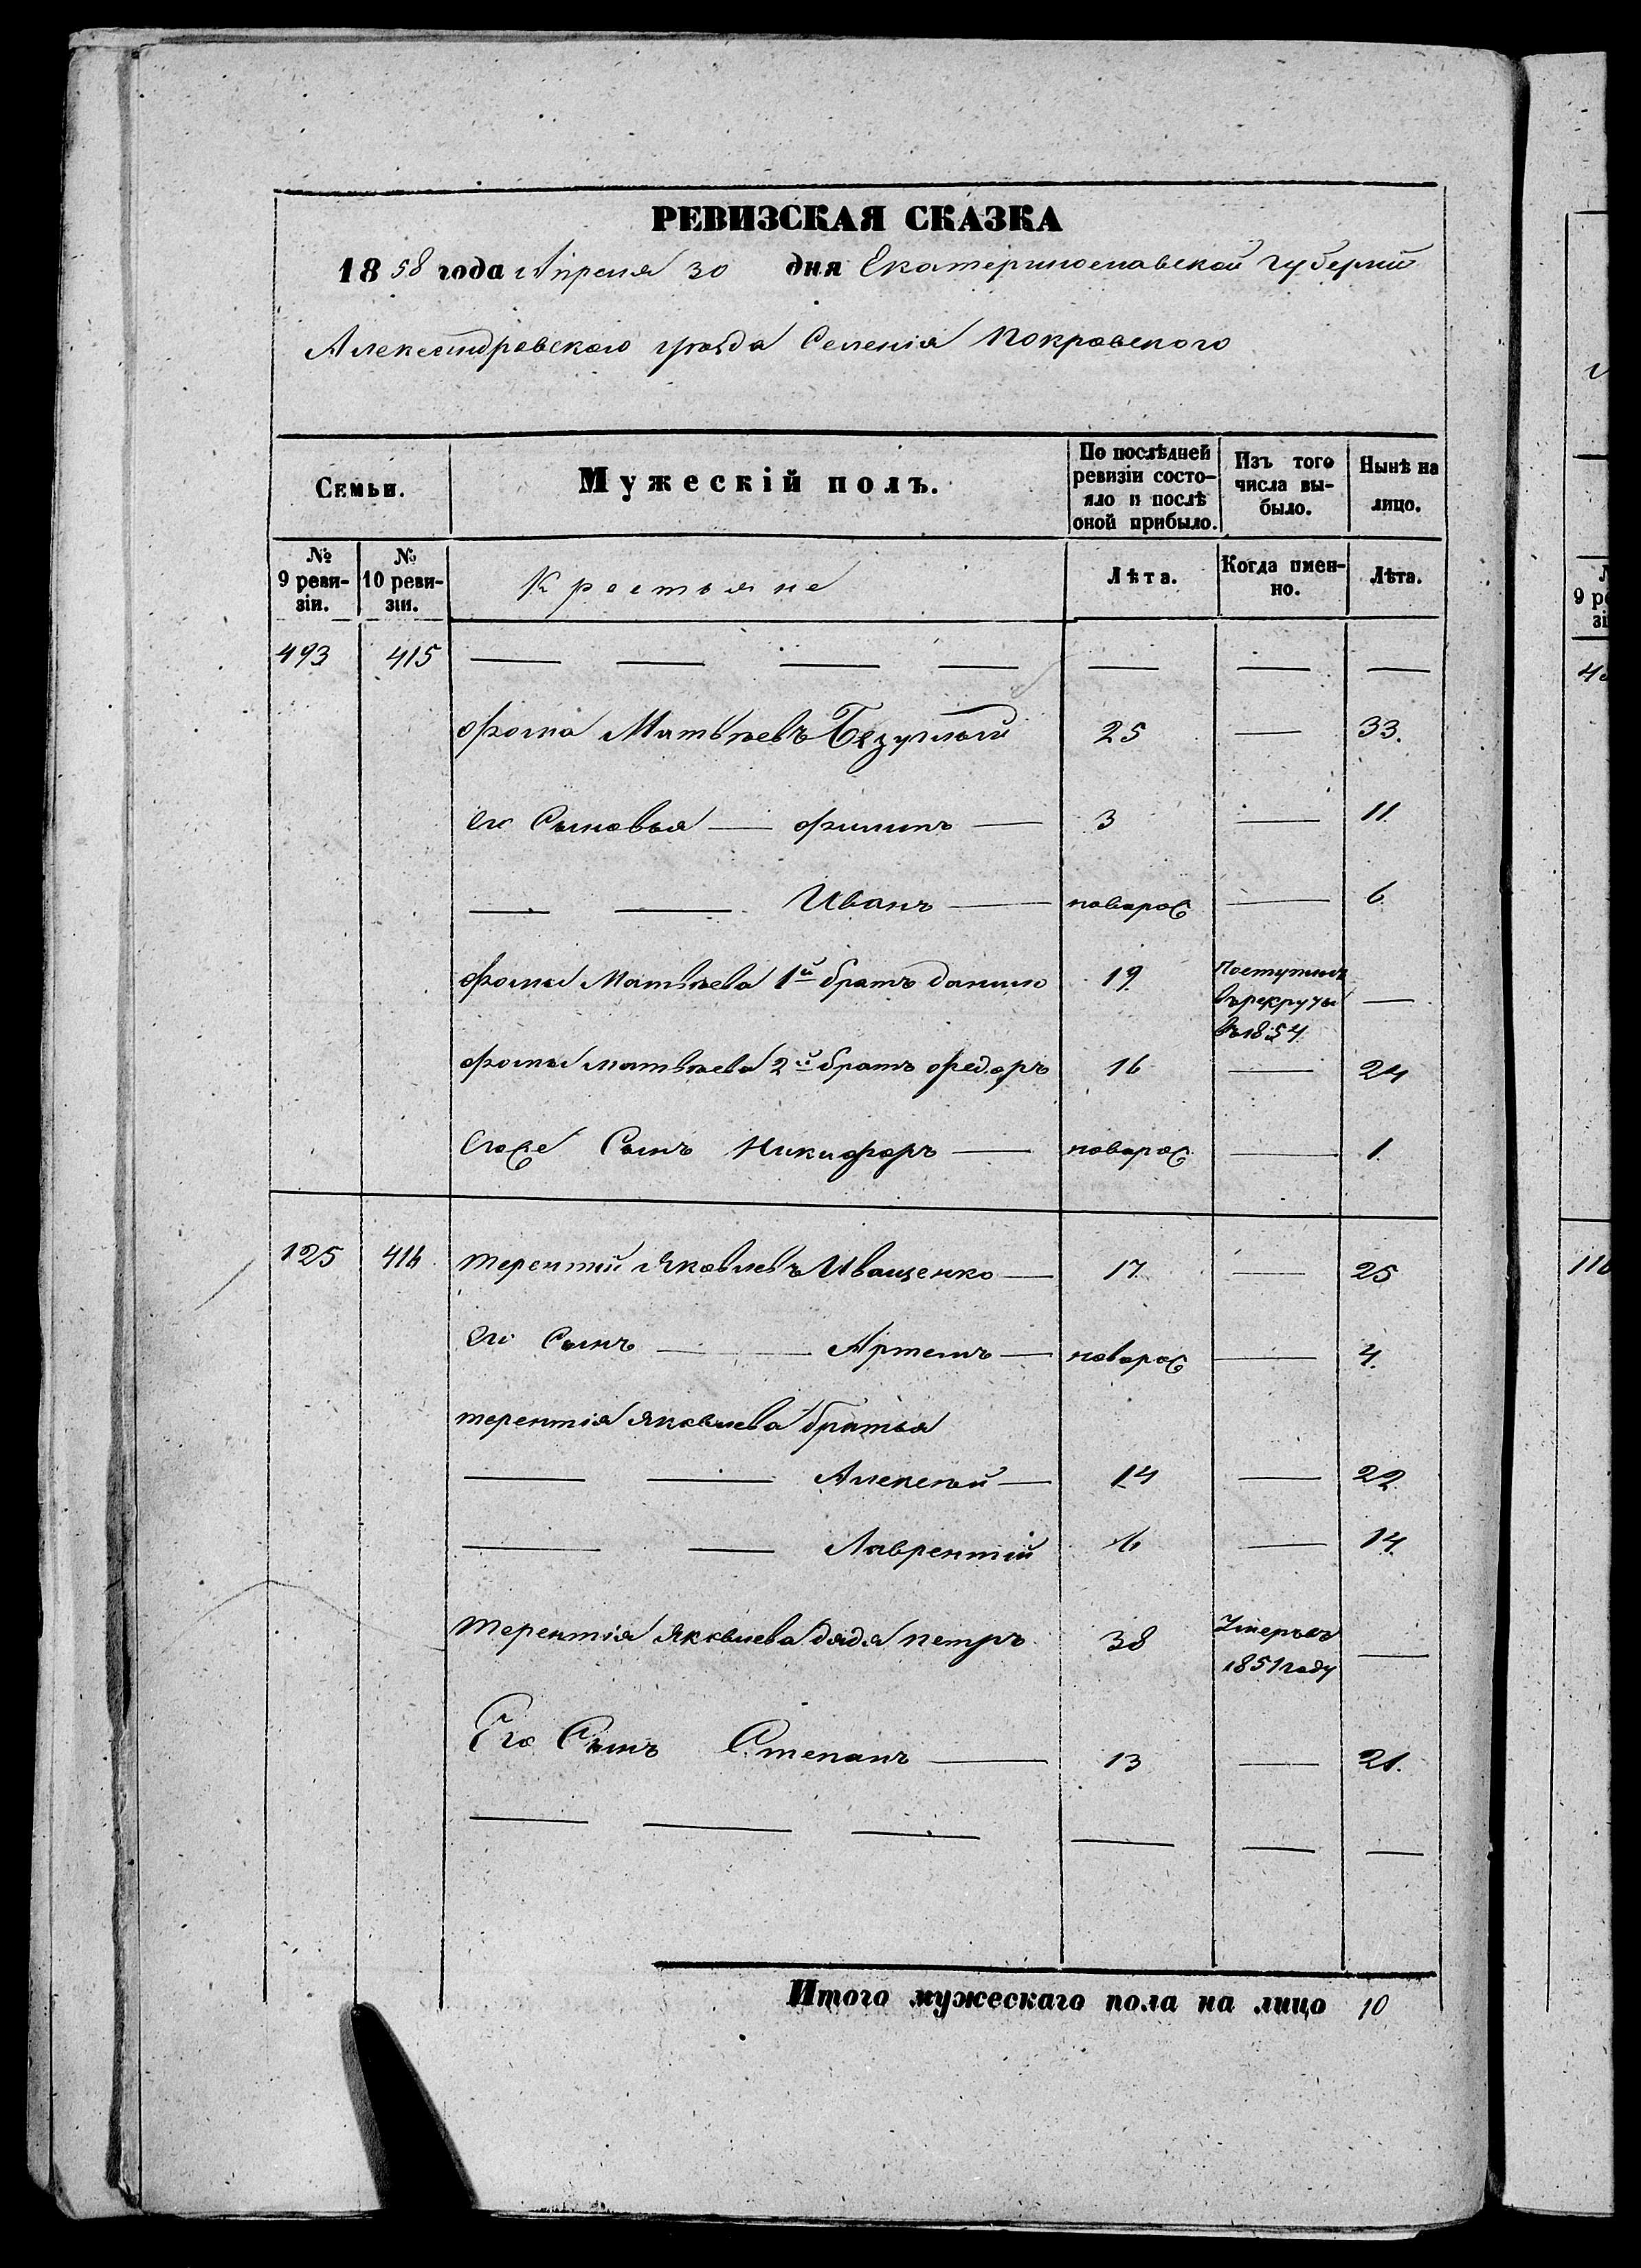 РЕВИЗСКАЯ СКАЗКА
1858 года Апреля 30 дня Екатеринославской Губернии
Александровского уезда Селенія Покровского
Семьи. Мужескій полъ. По послѣдней ревизіи состояло и послѣ оной прибыло. Изъ того числа выбыло. Нынѣ на лицо.
№ 9 ревизіи. № 10 ревизіи. Крестьяне Лѣта. Когда именно. Лѣта.
493 415
Фома Матвѣевъ Безуглый 25 33.
Его Сыновья Филипъ 3 11.
Иванъ новорож 6.
Фомы Матвѣева 1й братъ Данило 19 Поступилъ
въ рекруты
въ 1854
Фомы Матвѣева 2й братъ Федоръ 16 24
Егоже Сынъ Никифоръ новорож 1.
125 416 Терентий Яковлевъ Иващенко 17 25
Его Сынъ Артемъ новорож 4.
Терентія Яковлева братья
Алексѣй 14 22
Лаврентій 6 14.
Терентія Яковлева дядя Петръ 38 Умеръ въ
1851 году
Его Сынъ Степанъ 13 21.
Итого мужескаго пола на лицо 10
№
9 ре
зі